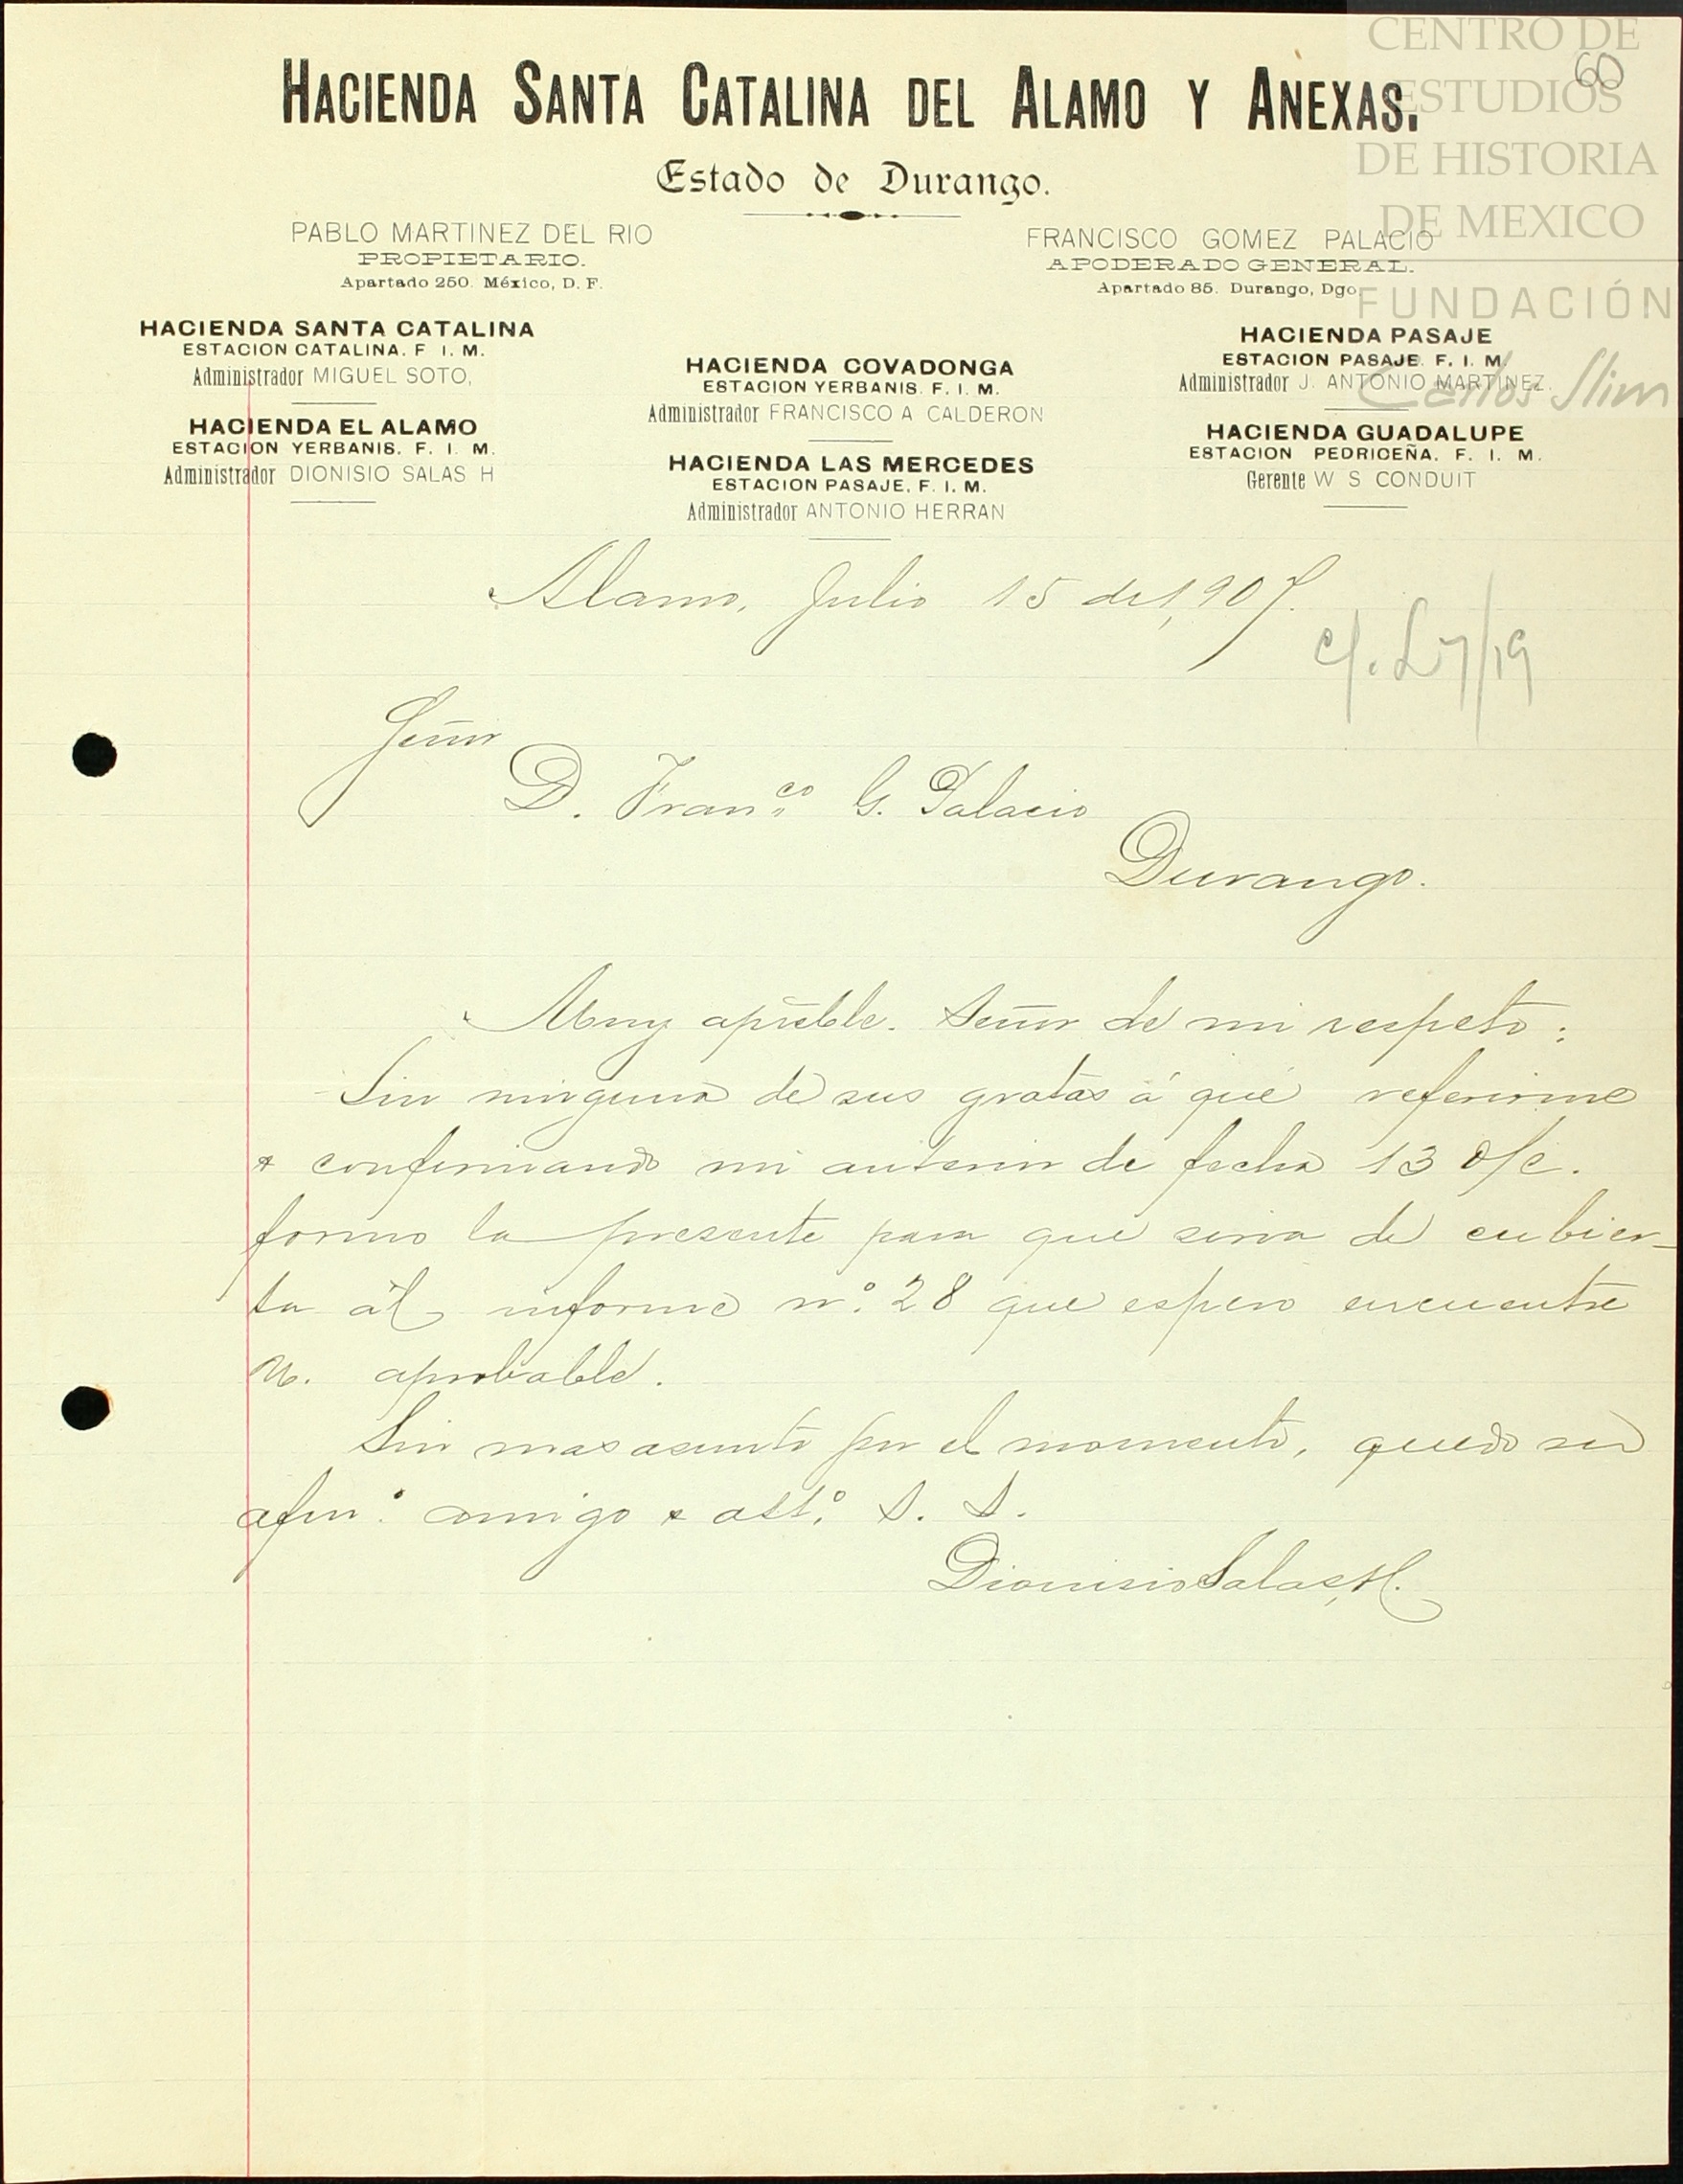 CENTRO DE
ESTUDIOS
DE HISTORIA
DE MEXICO
FUNDACIÓN
Carlos Slim
60
HACIENDA SANTA CATALINA DEL ALAMO Y ANEXAS.
Estado de Durango.
PABLO MARTINEZ DEL RIO
PROPIETARIO.
Apartado 250. México, D. F.
FRANCISCO GOMEZ PALACIO
APODERADO GENERAL.
Apartado 85. Durango, Dgo.
HACIENDA SANTA CATALINA
ESTACION CATALINA. F I. M.
Administrador MIGUEL SOTO,
HACIENDA EL ALAMO
ESTACION YERBANIS. F. I. M.
Administrador DIONISIO SALAS H
HACIENDA COVADONGA
ESTACION YERBANIS. F. I. M.
Administrador FRANCISCO A CALDERON
HACIENDA LAS MERCEDES
ESTACION PASAJE, F. I. M.
Administrador ANTONIO HERRAN
HACIENDA PASAJE
ESTACION PASAJE. F. I. M
Administrador J. ANTONIO MARTINEZ.
HACIENDA GUADALUPE
ESTACION PEDRICEÑA. F. I. M.
Gerente W S CONDUIT
Alamo, Julio 15 de 1,907.
7/19
Señor
D. Fran.co G. Palacio
Durango.
Muy apreble. Señor de mi respeto:
Sin ninguna de sus gratas á que referirme
& confirmando mi anterior de fecha 13 d/c.
formo la presente para que sirva de cubier-
ta ál informe n.° 28 que espero encuentre
U. aprobable.
Sin mas asunto por el momento, quedo su
afmo. amigo & att.° S. S.
Dionisio Salas, H.